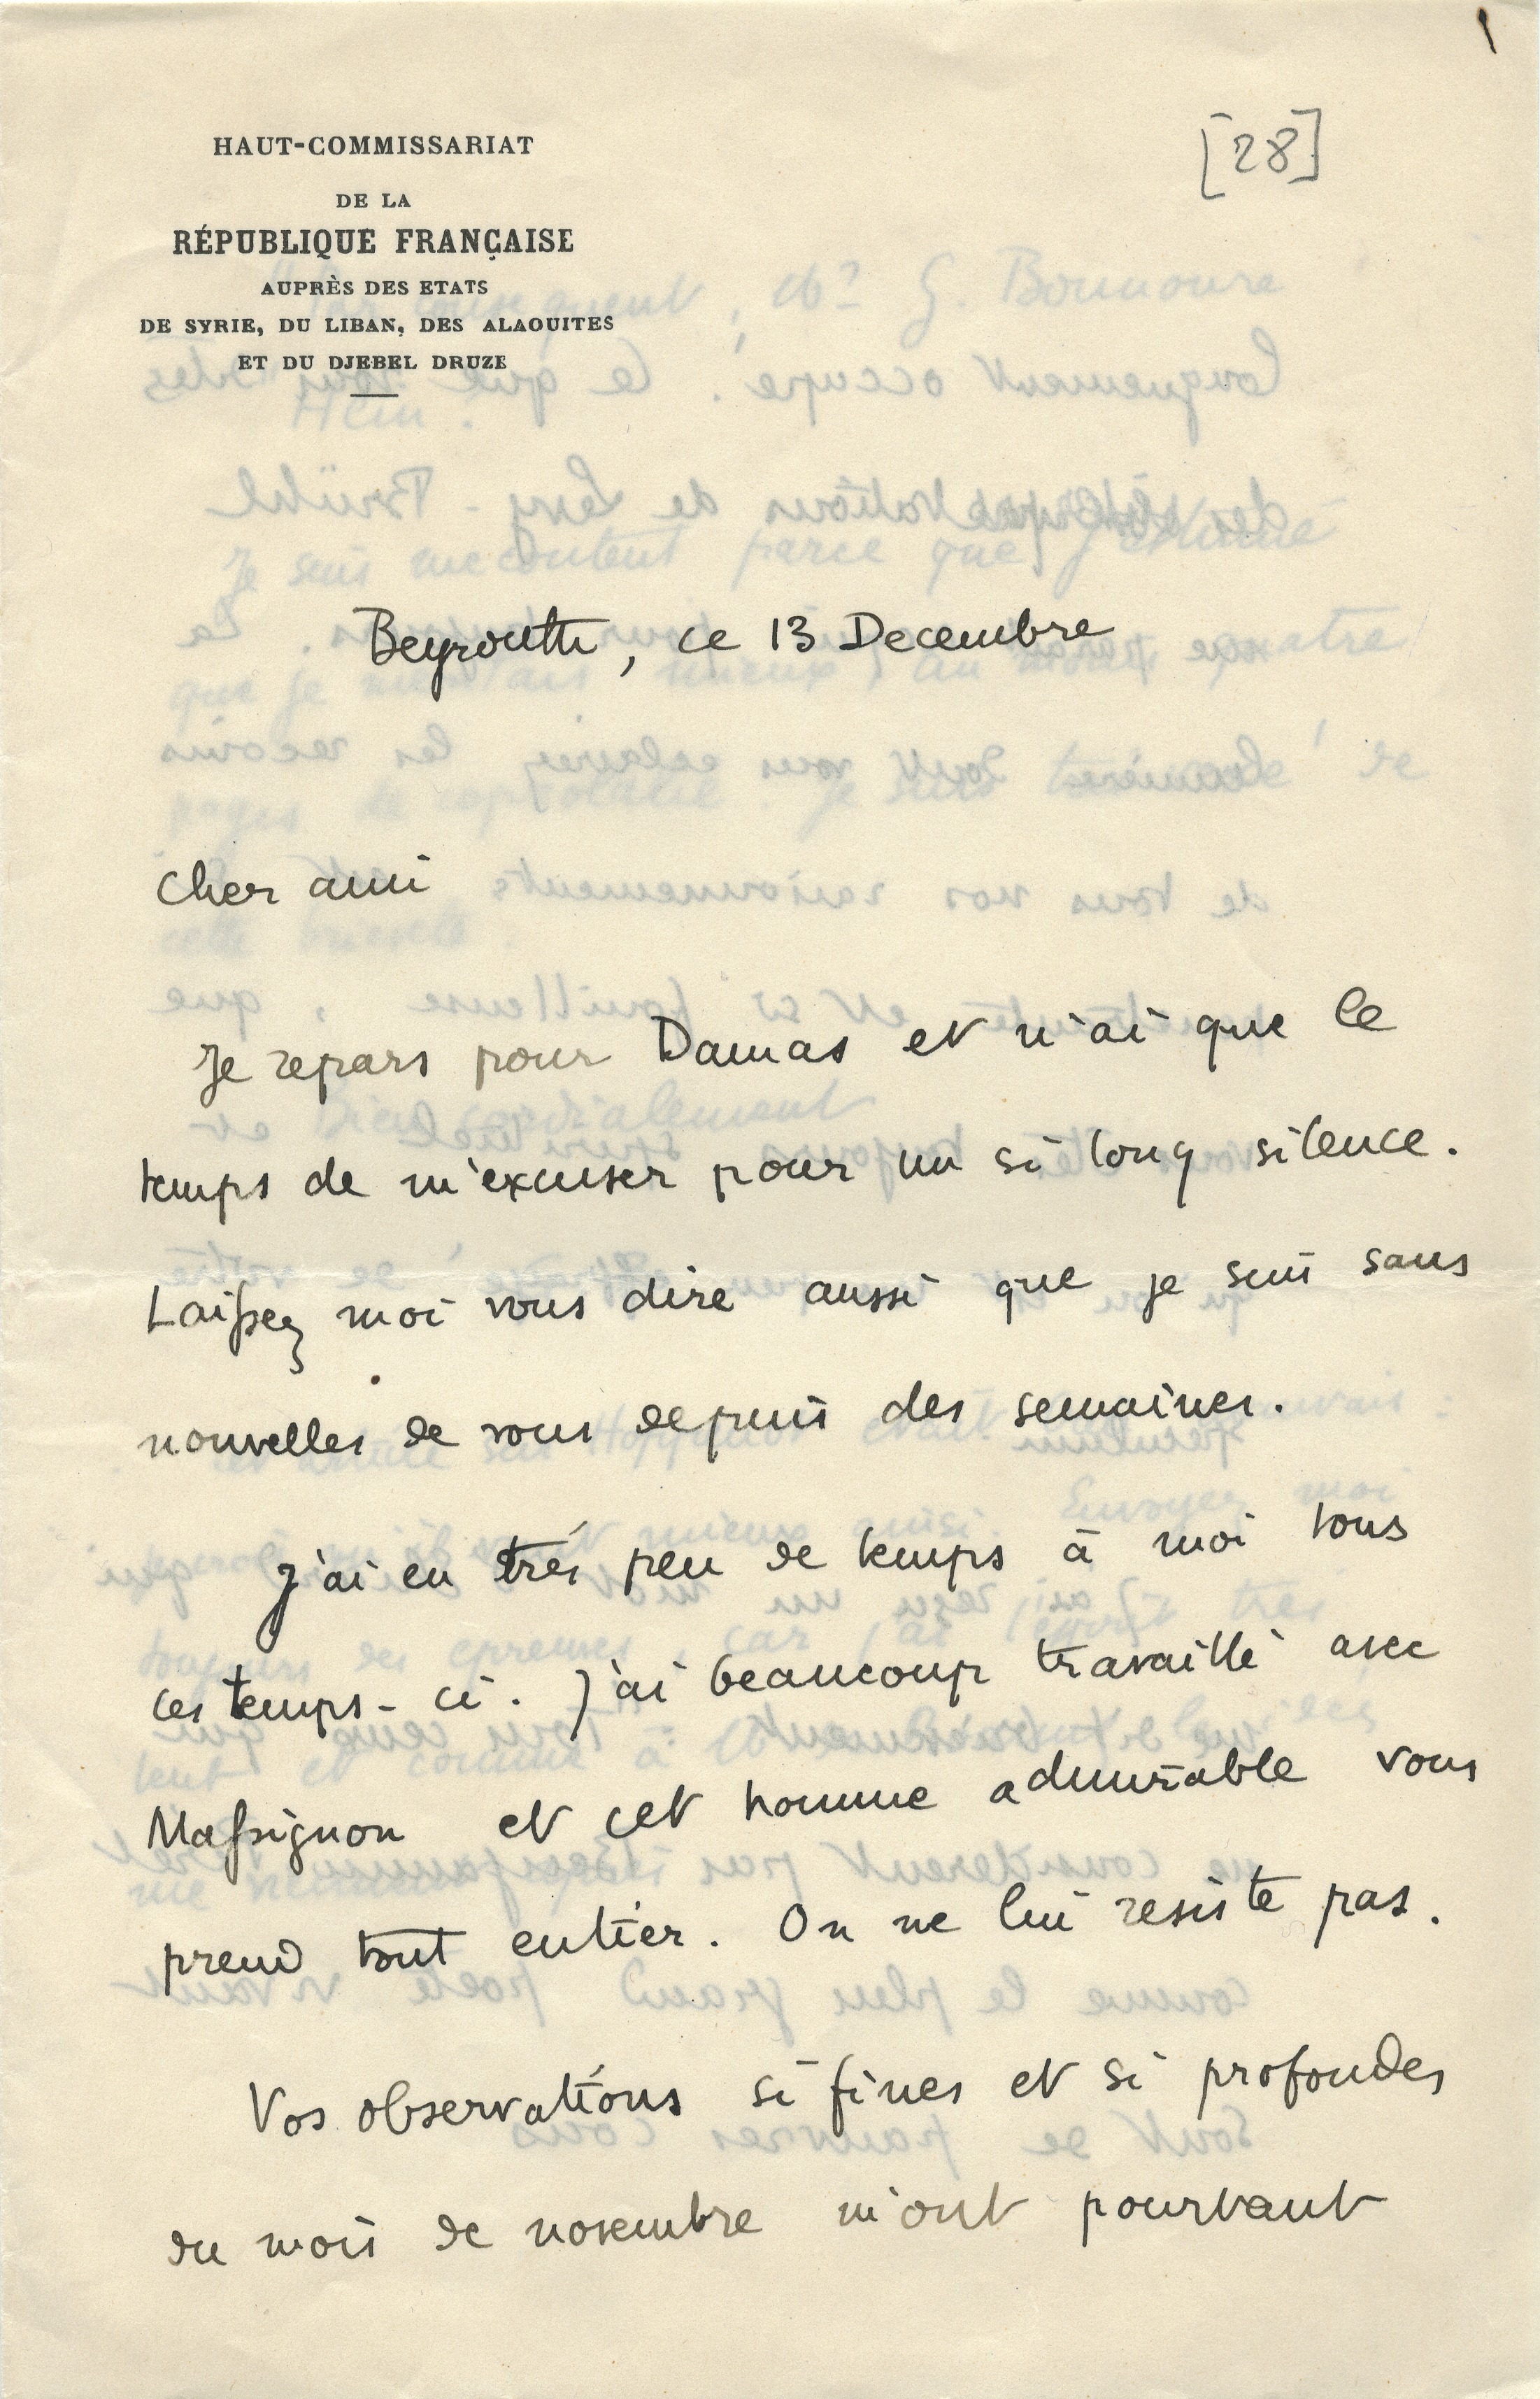 HAUT-COMMISSARIAT
DE LA
RÉPUBLIQUE FRANÇAISE
AUPRÈS DES ETATS
DE SYRIE, DU LIBAN, DES ALAOUITES
ET DU DJEBEL DRUZE
[28]
Beyrouth, ce 13 Decembre
Cher ami
Je repars pour Damas et n'ai que le
temps de m'excuser pour un si long silence.
Laissez moi vous dire aussi que je suis sans
nouvelles de vous depuis des semaines.
J'ai eu très peu de temps à moi tous
ces temps-ci. J'ai beaucoup travaillé avec
Massignon et cet homme admirable vous
prend tout entier. On ne lui resiste pas.
Vos observations si fines et si profondes
du mois de novembre m'ont pourtant